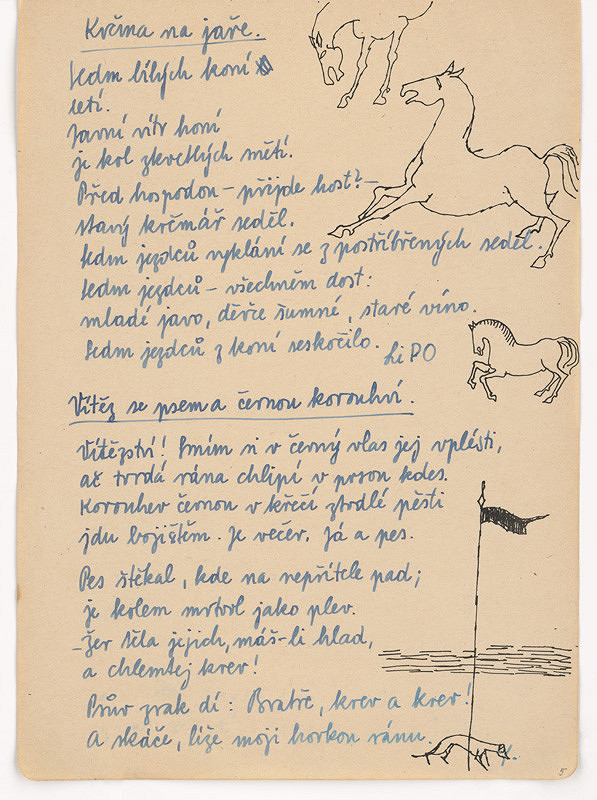 Krčma na jaře.
Sedm bílých koní
letí.
Jarní vítr honí
je kol zkvetlých snětí.
Před hospodou – přijde host? –
starý krčmář seděl.
Sedm jezdců vyklání se z postříbřených sedel.
Sedm jezdců – všechněm dost:
mladé jaro, děvče šumné, staré víno.
Sedm jezdců z koní seskočilo.
Li PO
Vítěz se psem a černou korouhví.
Vítězství! Smím si v černý vlas jej vplésti,
ač tvrdá rána chlipí v prsou kdes.
Korouhev černou v křečí ztvrdlé pěsti
jdu bojištěm. Je večer. Já a pes.
Pes štěkal, kde na nepřítele pad;
je kolem mrtvol jako plev.
– Žer těla jejich, máš-li hlad,
a chlemtej krev!
Psův zrak dí: Bratře, krev a krev!
A skáče, líže moji horkou ránu.
5